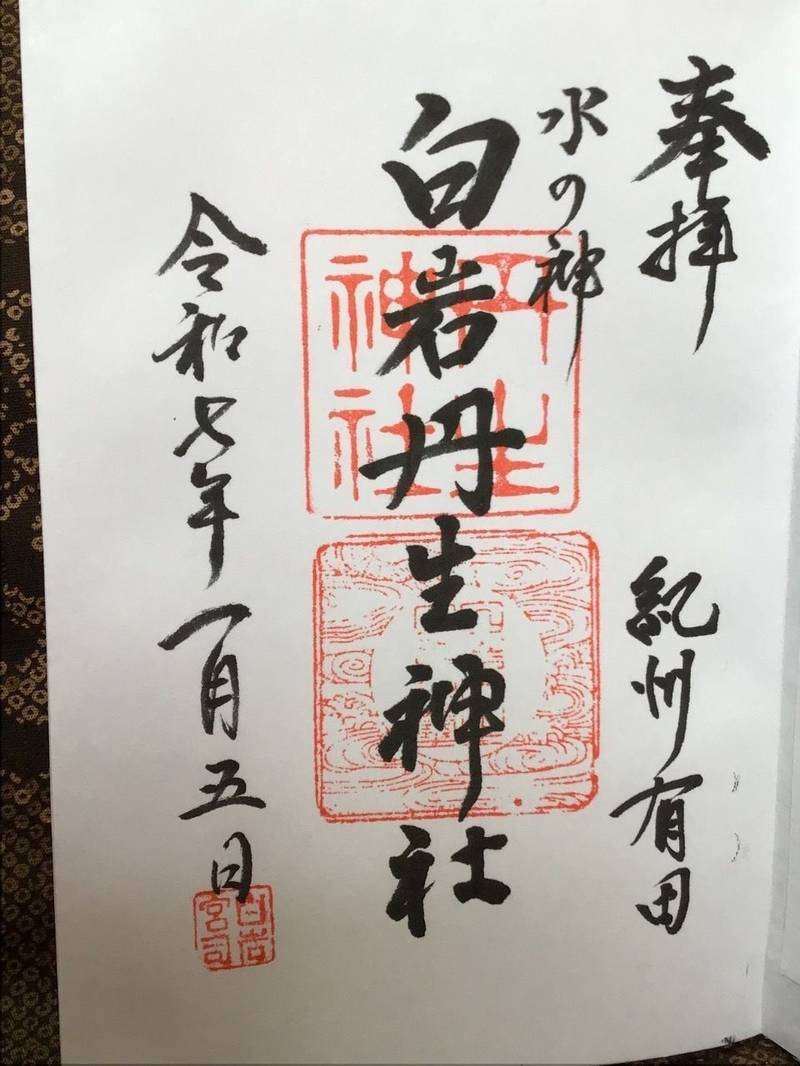 奉拝
紀州有田
水の神
白岩丹生神社
丹生神社
令和七年一月五日
白岩宮司